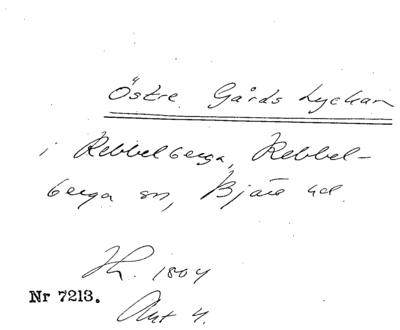 Östre Gårds Lyckan
i Rebbelberga, Rebbel-
berga sn, Bjäre hd.
Lh. 1804
Nr 7213.
Akt 4.